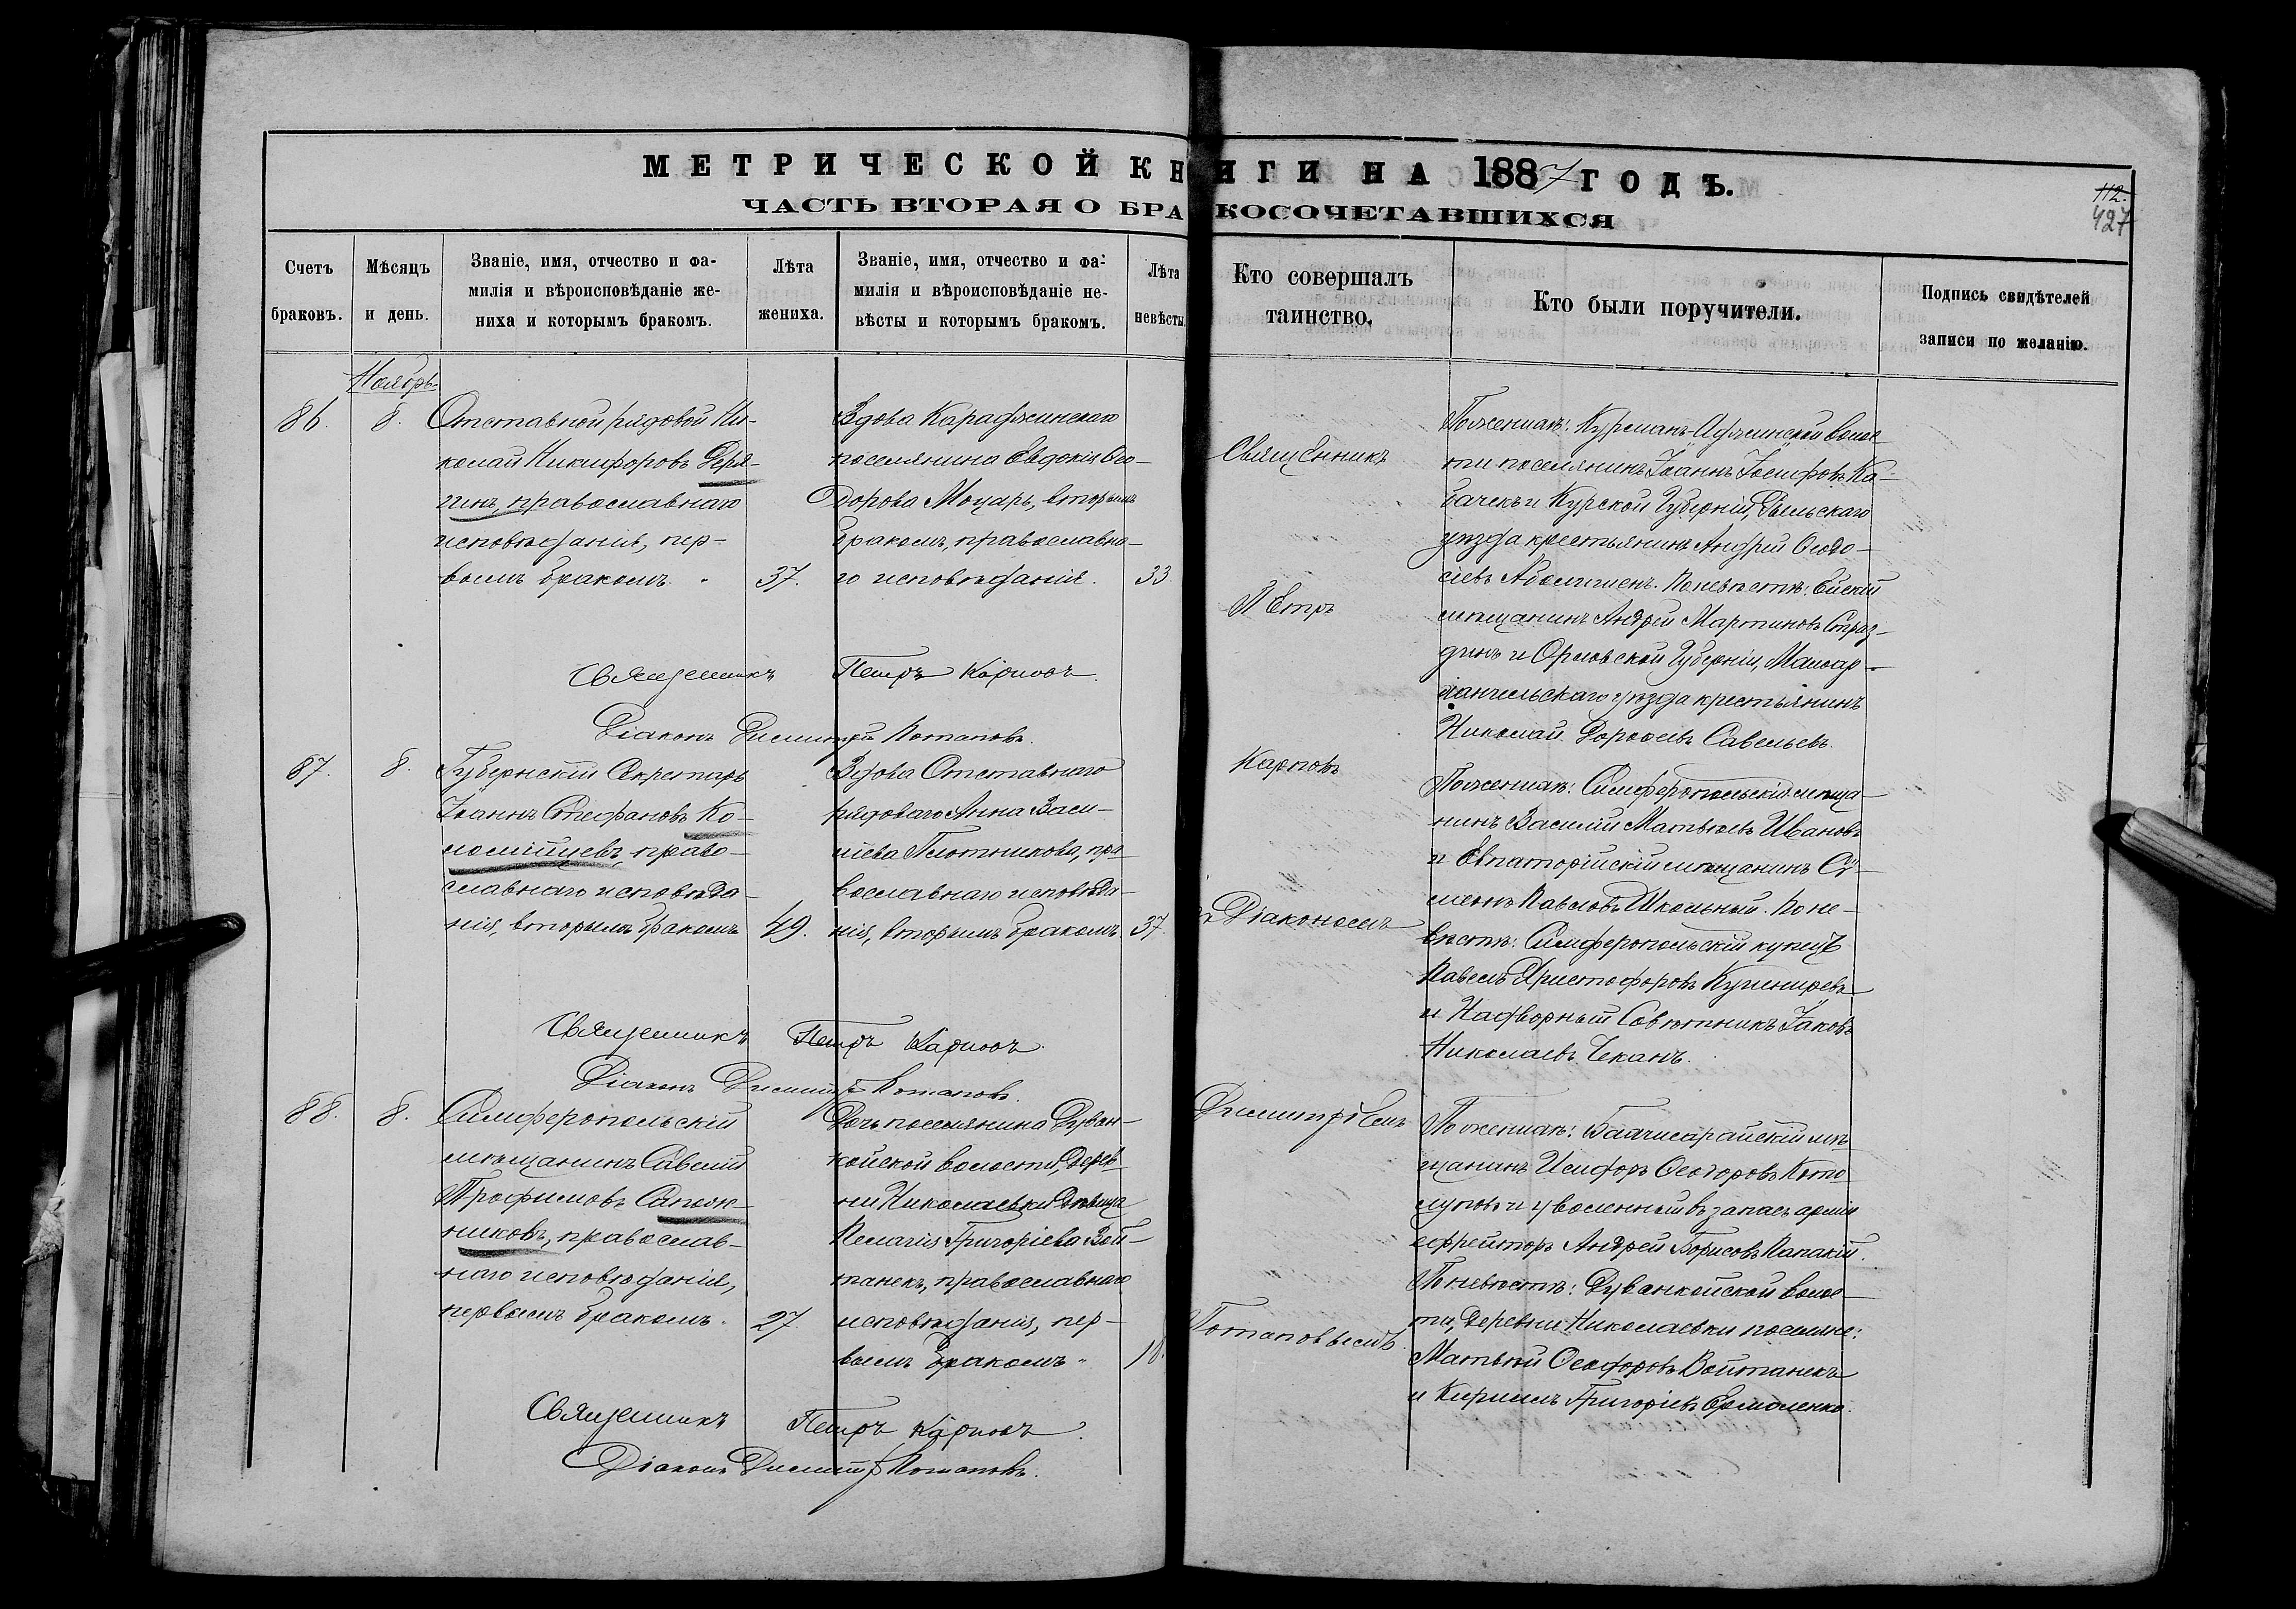 МЕТРИЧЕСКОЙ КНИГИ НА 1887 ГОДЪ.
ЧАСТЬ ВТОРАЯ О БРАКОСОЧЕТАВШИХСЯ
112.
427
Счетъ браковъ.
Мѣсяцъ и день.
Званіе, имя, отчество и фа-
милія и вѣроисповѣданіе же-
ниха и которымъ бракомъ.
Лѣта жениха.
Званіе, имя, отчество и фа-
милія и вѣроисповѣданіе не-
вѣсты и которымъ бракомъ.
Лѣта невѣсты.
Кто совершалъ таинство.
Кто были поручители.
Подпись свидѣтелей
записи по желанію.
Ноябрь
86.
8.
Отставной рядовой Ни-
колай Никифоровъ Деря-
гинъ, православнаго
исповѣданія, пер-
вымъ бракомъ.
37.
Вдова Караджинскаго
поселянина Евдокія Ѳео-
дорова Моцарь, вторымъ
бракомъ, православна-
го исповѣданія.
33.
По женихѣ: Курманъ-Аджинской волос-
ти поселянинъ Іоаннъ Іосифовъ Ка-
бачекъ и Курской Губерніи, Рыльскаго
уѣзда крестьянинъ Андрей Ѳеодо-
сіевъ. По невѣстѣ: Ейскій
мѣщанинъ Андрей Мартиновъ Страз-
динъ и Орловской Губерніи, Малоар-
хангельскаго уѣзда крестьянинъ
Николай Дороѳеевъ Савельевъ.
Священникъ Петръ Карповъ
Діаконъ Димитрій Потаповъ.
87.
8.
Губернскій Секретарь
Іоаннъ Стефановъ Ко-
ломійцевъ, право-
славнаго исповѣда-
нія, вторымъ бракомъ
49.
Вдова Отставнаго
рядоваго Анна Васи-
ліева Плотникова, пра-
вославнаго исповѣда-
нія, вторымъ бракомъ
37.
По женихѣ: Симферопольскій мѣща-
нинъ Василій Матвѣевъ Ивановъ
и Евпаторійскій мѣщанинъ Си-
меонъ Павловъ Школьный. По не-
вѣстѣ: Симферопольскій купецъ
Павелъ Христофоровъ Кушниревъ
и Надворный Совѣтникъ Іаковъ
Николаевъ Чеканъ.
Священникъ Петръ Карповъ
Діаконъ Димитрій Потаповъ.
88.
8.
Симферопольскій
мѣщанинъ Савелій
Трофимовъ Сапож-
никовъ, православ-
наго исповѣданія,
первымъ бракомъ.
27.
Дочь поселянина Дуван-
койской волости, дерев-
ни Николаевки Дѣвица
Пелагія Григоріева Вой-
танекъ, православнаго
исповѣданія, пер-
вымъ бракомъ
18.
По женихѣ: Бахчисарайскій мѣ-
щанинъ Ѳеодоровъ Кото-
луповъ и уволенный въ запасъ арміи
ефрейторъ Андрей Борисовъ Папакій.
По невѣстѣ: Дуванкойской волос-
ти, деревни Николаевки поселяне:
Матвѣй Ѳеодоровъ Войтанекъ
и Кириллъ Григоріевъ Ермоленко.
Священникъ Петръ Карповъ
Діаконъ Димитрій Потаповъ.
Священникъ
Петръ
Карповъ
съ Діакономъ
Димитріемъ
Потаповымъ.